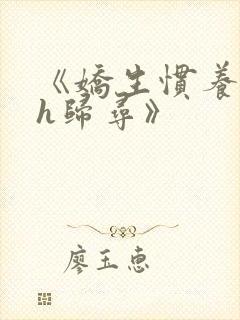 《嬌生慣養
h歸尋》
廖玉惠